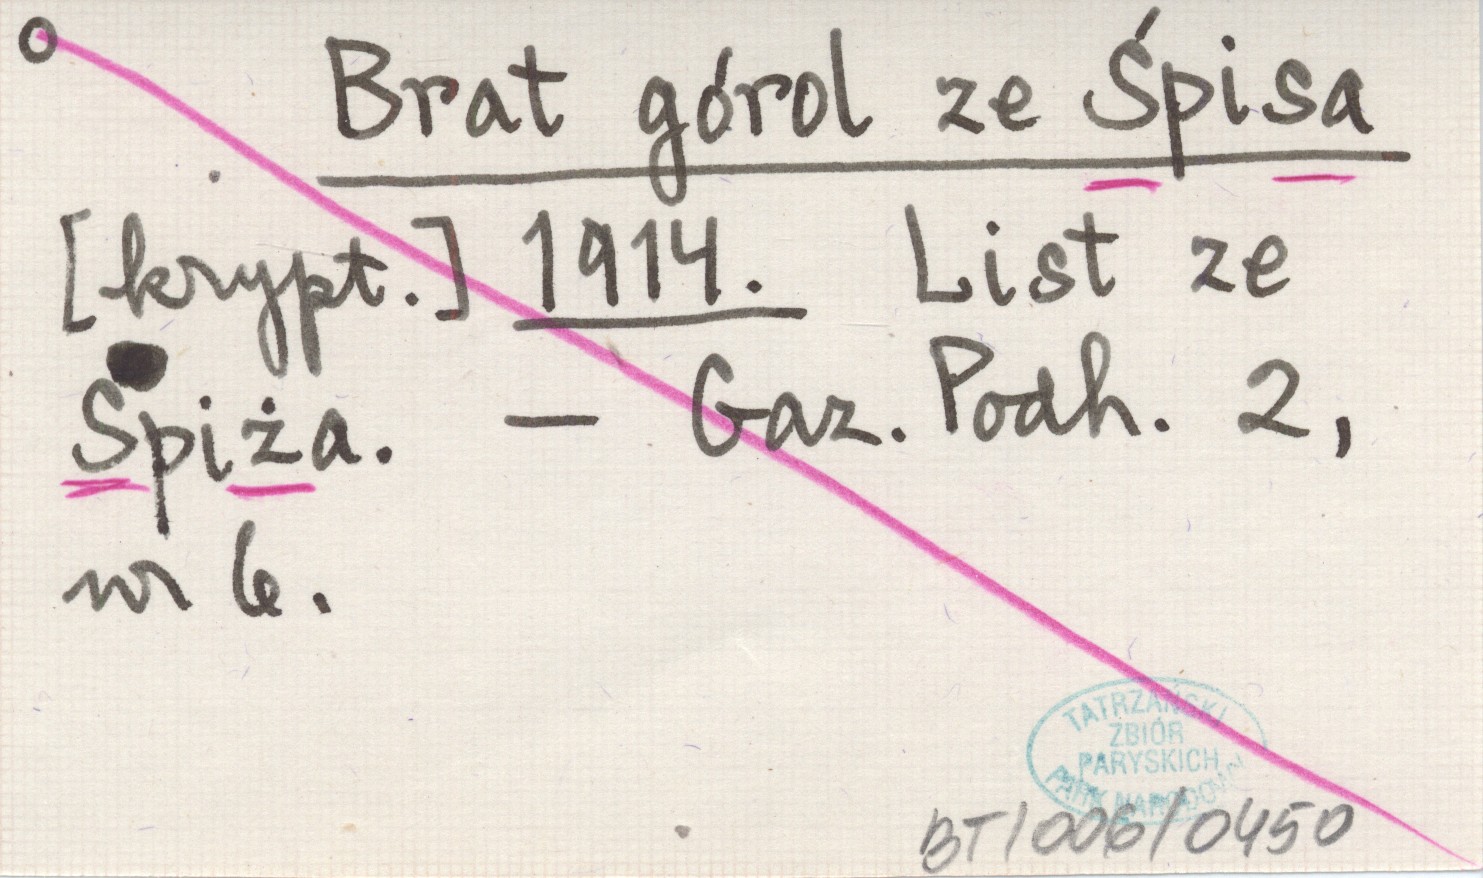 Brat górol ze Śpisa
[krypt.] 1914. List ze
Spiża. — Gaz. Podh. 2,
nr 6.
TATRZAŃSKI
ZBIÓR
PARYSKICH
PARK NARODOWY
BT/006/0450